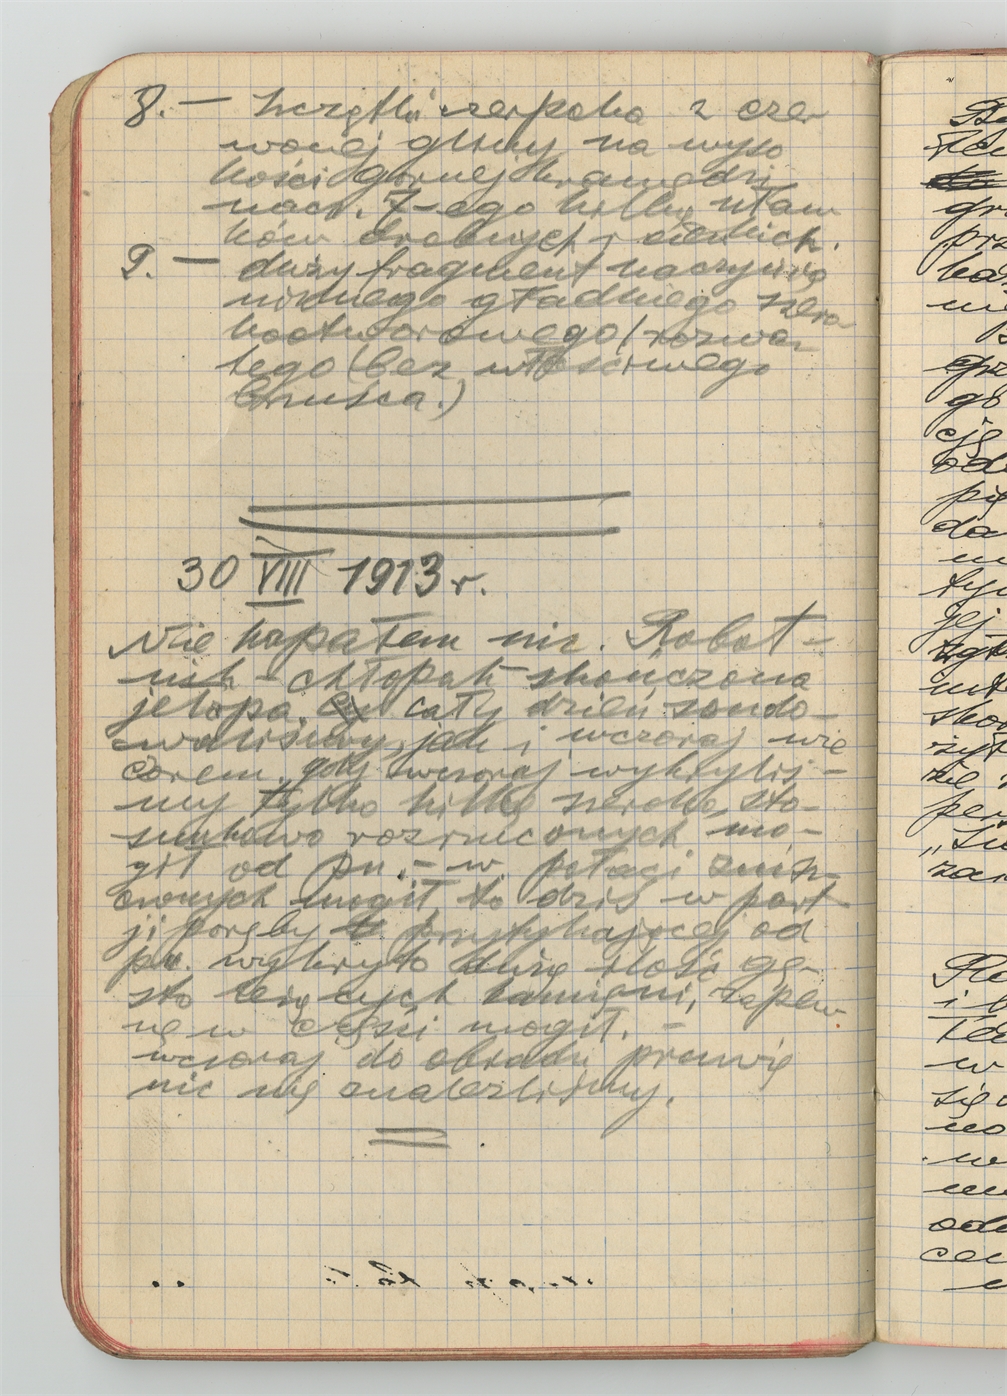 8. — szczątki czerpaka z czer
wonej gliny na wyso
kości górnej krawędzi
nacz. 7-ego kilku ułam
ków drobnych i cienkich.
9. — duży fragment naczynia
niskiego gładkiego szero
kootworowego / rozwar
tego (bez właściwego
brzuśca.)
30 VIII 1913 r.
Nie kopałem nic. Robot-
nik - chłopak skończona
jełopa. cały dzień sondo-
waliśmy, jak i wczoraj wie
czorem. gdy wczoraj wykryliś-
my tylko kilka szeroko, sto-
sunkowo rozrzuconych mo-
gił od pn. - w. połaci znisz-
czonych mogił, to dziś w part
ji poręby przytykającej od
pn. wykryto dużą ilość gę-
sto leżących kamieni, zapew
ne w części mogił. -
wczoraj do obiadu prawie
nic nie znaleźliśmy.
gr
prz
w
go
cję
od
pię
da
tym
jej
się
w